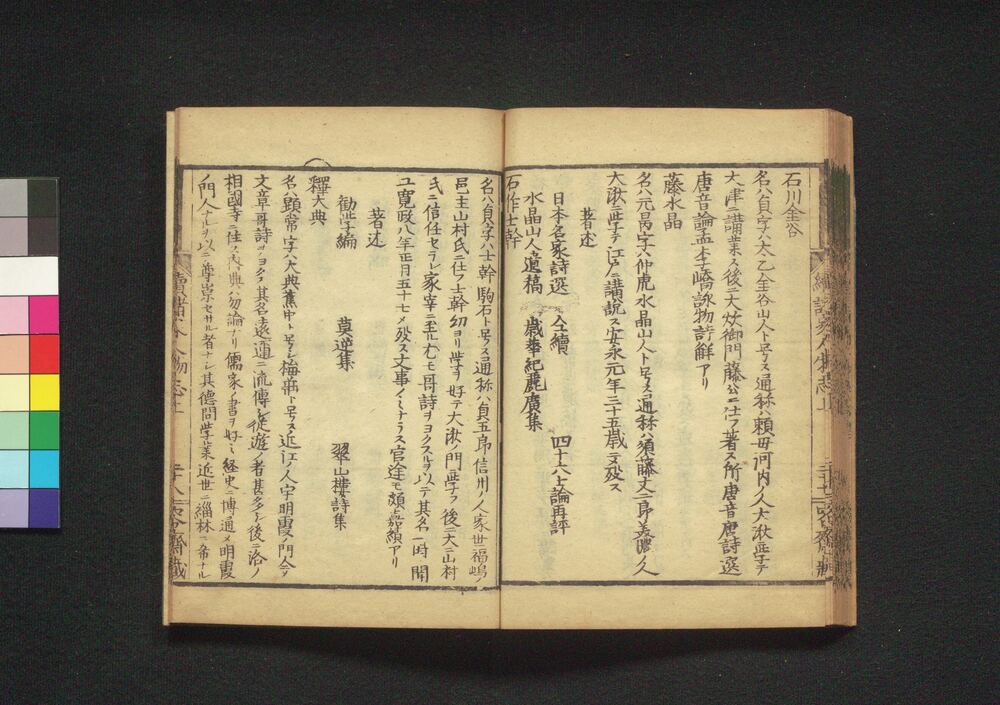 石川金谷
名ハ貞字ハ太乙金谷山人ト号ス通称ハ頼母河内ノ人大湫ニ学テ
大津ニ講業ス後ニ大炊御門藤公ニ仕フ著ス所唐音唐詩選
唐音論孟李嶠詠物詩解アリ
藤水晶
名ハ元昺字ハ仲虎水晶山人ト号ス通称ハ須藤丈二郎美濃ノ人
大湫ニ学テ江戸ニ講説ス安永元年三十五歳ニテ歿ス
著述
日本名家詩選 仝續 四十六士論再評
水晶山人遺稿 歳華紀麗廣集
石作士幹
名ハ貞字ハ士幹駒石ト号ス通称ハ貞五郎信州ノ人家世福嶋ノ
邑主山村氏ニ仕フ士幹幼ヨリ学ヲ好テ大湫ノ門ニ学フ後ニ大ニ山村
氏ニ信任セラレ家宰ニ至ル尤モ哥詩ヲヨクスルヲ以テ其名一時ニ聞
ユ寛政八年正月五十七ニメ歿ス文事ノミナラス官途モ頗ル嘉績アリ
著述
勧学編 莫逆集 翠山樓詩集
釋大典
名ハ顕常字ハ大典蕉中ト号シ梅荘ト号ス近江ノ人宇明霞ノ門
文章哥詩ヲヨクメ其名遠通ニ流傳シ従遊ノ者甚多シ後ニ洛ノ
相國寺ニ住ス内典ハ勿論ナリ儒家ノ書ヲ好ミ経史ニ博通メ明霞
ノ門人ナルヲ以テ尊崇セサル者ナシ其德問学業近世ニ緇林ニ希ナル
續諸家人物志上